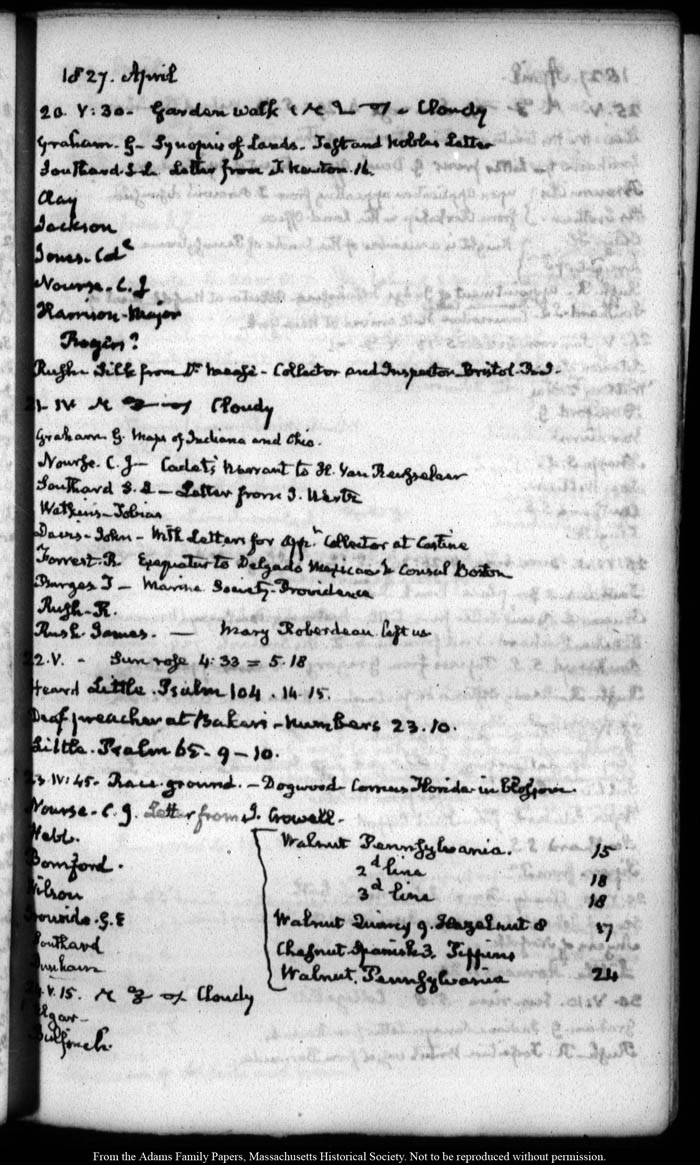 1827. April
20. V:30. Garden walk Cloudy
Graham. G- Synopsis of Lands. Taft and Nobles Letter
Southard. S. L. Letter from T. Newton. 16.
Clay
Jackson
Jones. Cdᵉ
Nourse. C. J
Harrison. Major
Rogers?
Rush- from Dr. - Collector and Inspector Bristol. R.I.
21. IV Cloudy
Graham. G. Maps of Indiana and Ohio.
Nourse. C. J- Cadet's Warrant to H. Van Rensselaer
Southard S. L - Letter from J.
Watkins-Tobias
Davis-John- With Letters for appᵗ Collector at Castine
Forrest. R. Exequatur to Delgado Mexican V. Consul Boston
Burges T - Marine Society. Providence
Rush-R.
Rush. James. — Mary Roberdeau. left us
22. V. - Sun rose 4:33 = 5.18
Heard Little. Psalm 104. 14. 15.
Deaf preacher at Bakers- Numbers 23. 10.
Little. Psalm 65- 9-10.
23. IV:45- Race ground. - Dogwood Cornus Florida- in blossom
Nourse-C. J. Letter from J. Crowell.
Webb.
Walnut Pennsylvania. 15
Bomford.
2ᵈ line 18
Wilson
3ᵈ line 18
G. E
Walnut Quincy 9. Hazelnut 8 17
Southard
Chesnut. Spanish 3.
Dunham
Walnut. Pennsylvania 24
24. V. 15. Cloudy
Elgar-
Bulfinch.
From the Adams Family Papers, Massachusetts Historical Society. Not to be reproduced without permission.